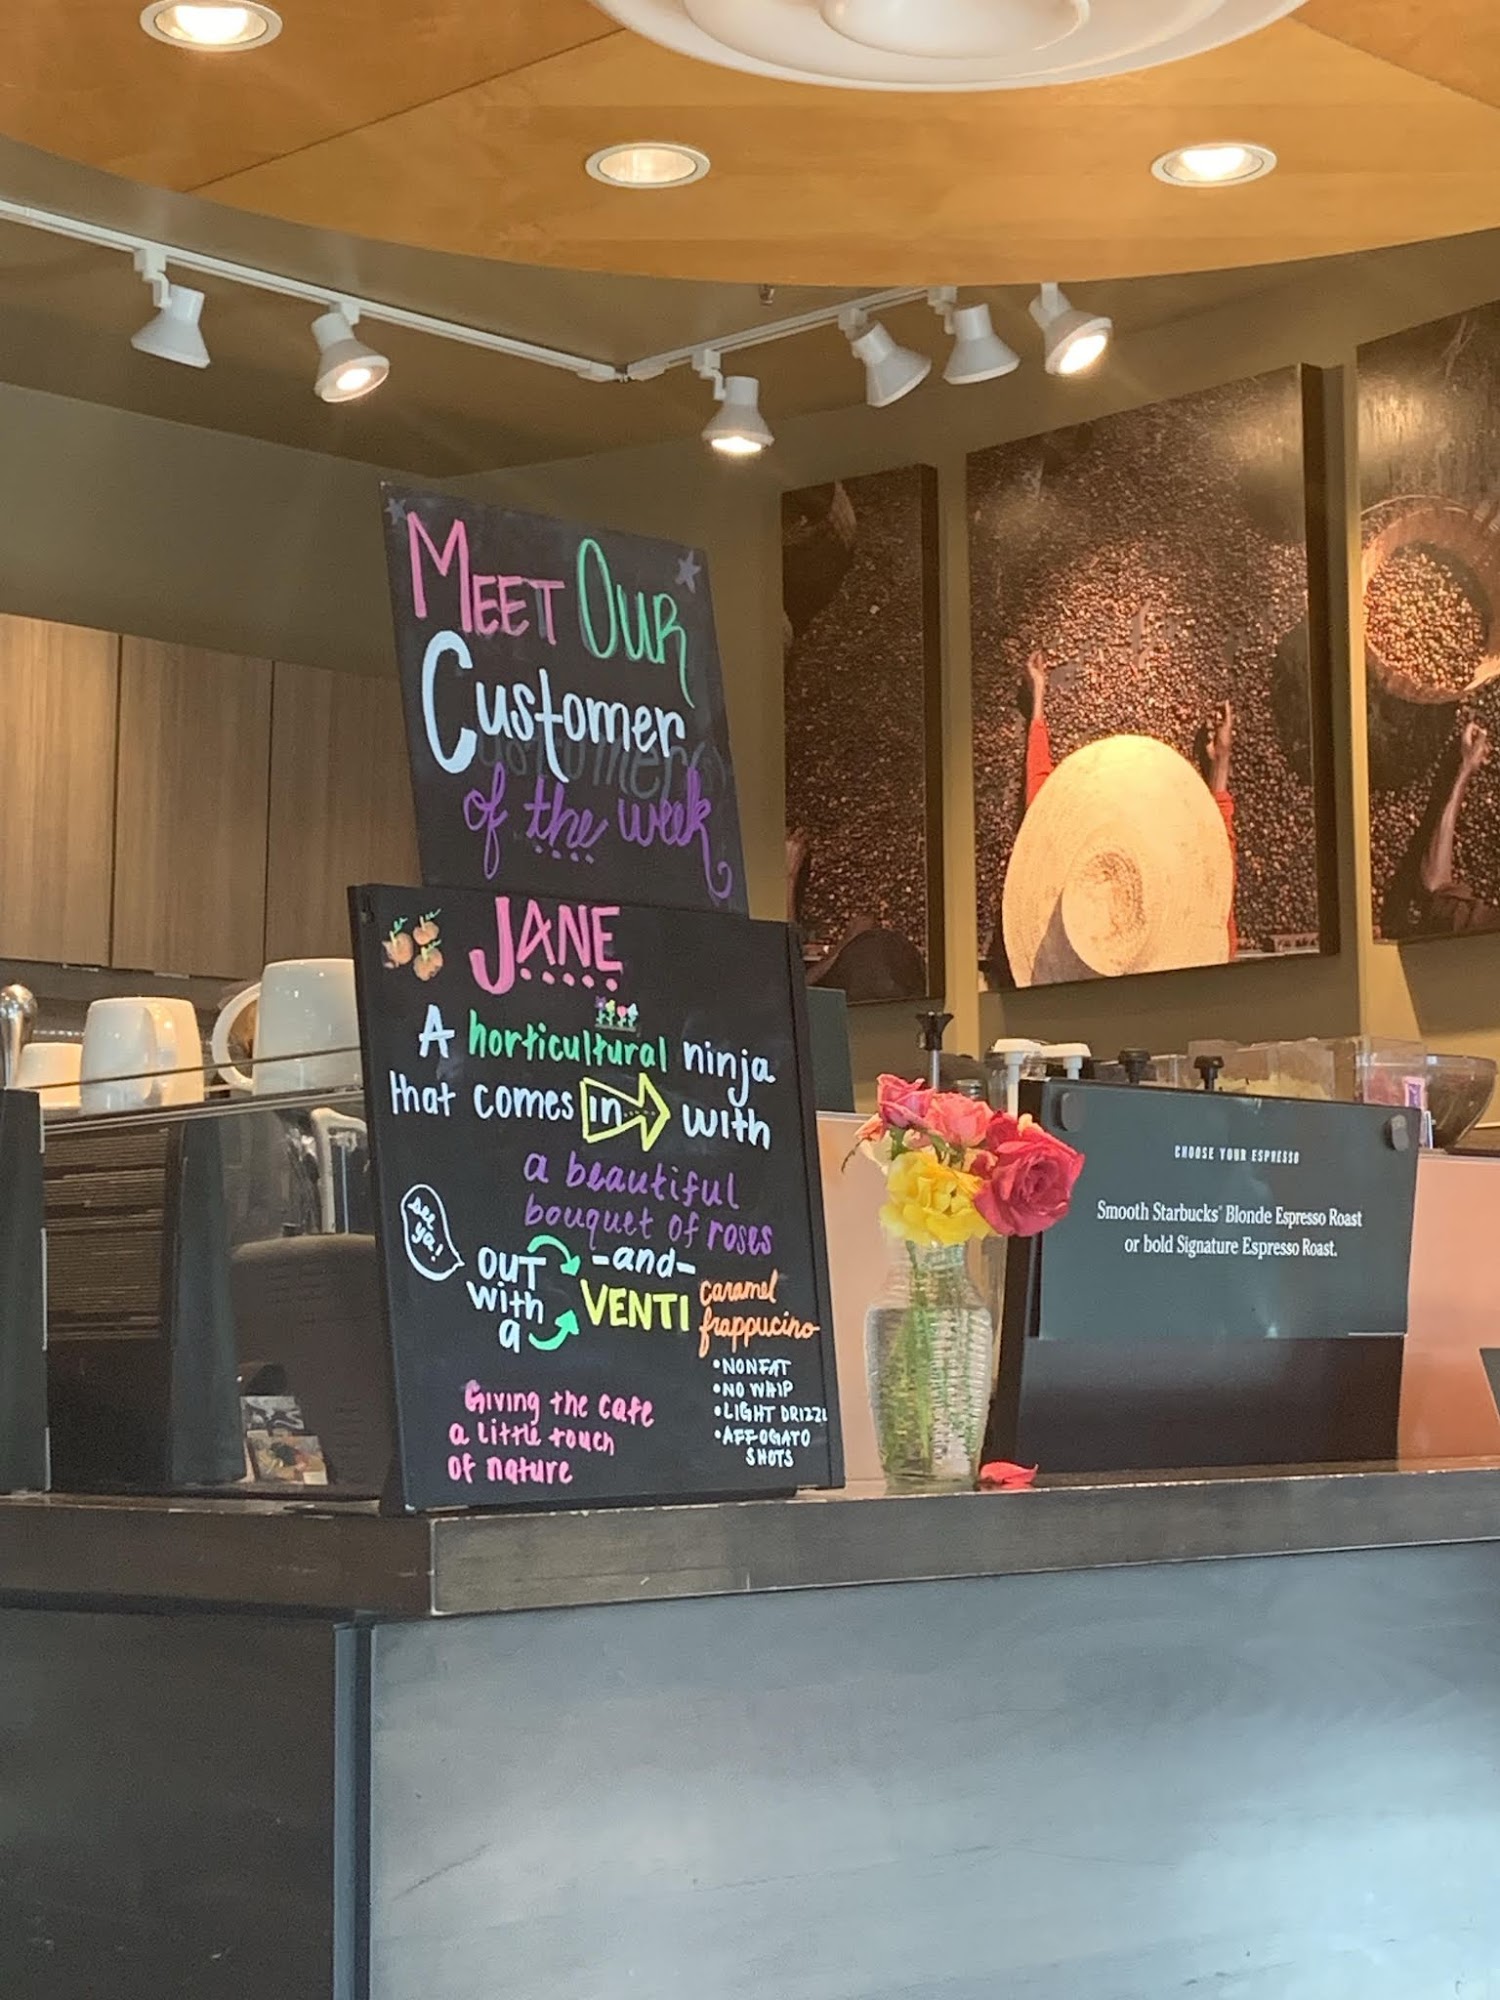 MEET OUR
Customer
of the week
JANE
A horticultural ninja
that comes in with
a beautiful
bouquet of roses
see
ya!
-and-
out
with
a
VENTI
caramel
frappucino
• NONFAT
• NO WHIP
• LIGHT DRIZZL
• AFFOGATO
SHOTS
Giving the cafe
a little touch
of nature
CHOOSE YOUR ESPRESSO
Smooth Starbucks® Blonde Espresso Roast
or bold Signature Espresso Roast.